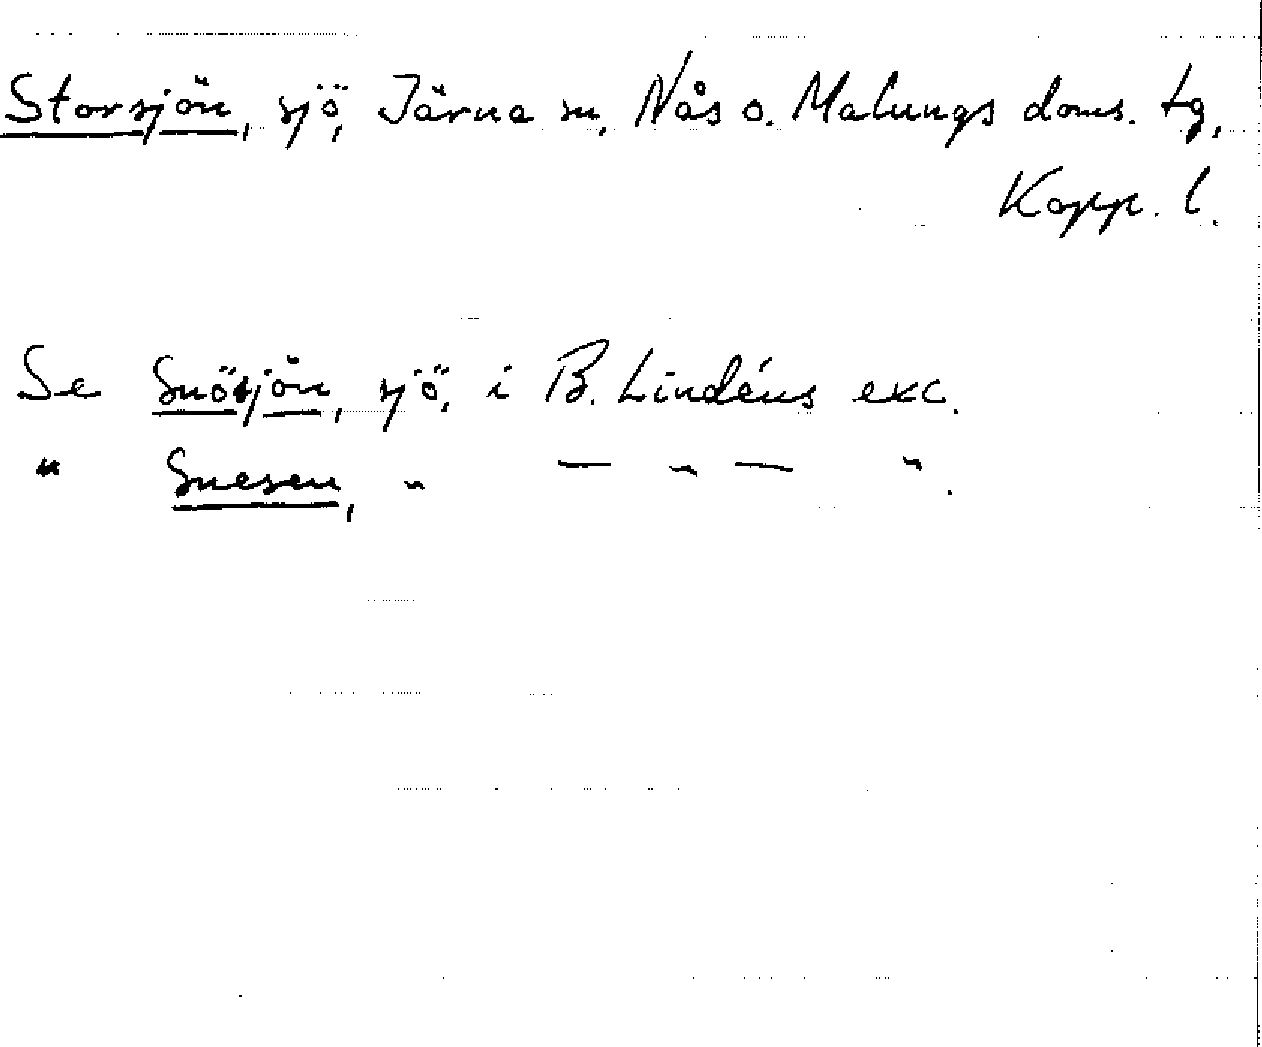 Storsjön, sjö, Järna sn, Nås o. Malungs doms. tg,
Kopp. l.
Se Snösjön, sjö, i B. Lindéns exc.
" Snesen, " — " — ".